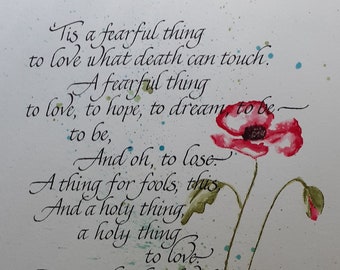 'Tis a fearful thing
to love what death can touch.
A fearful thing
to love, to hope, to dream, to be —
to be,
And oh, to lose.
A thing for fools, this,
And a holy thing,
a holy thing
to love.